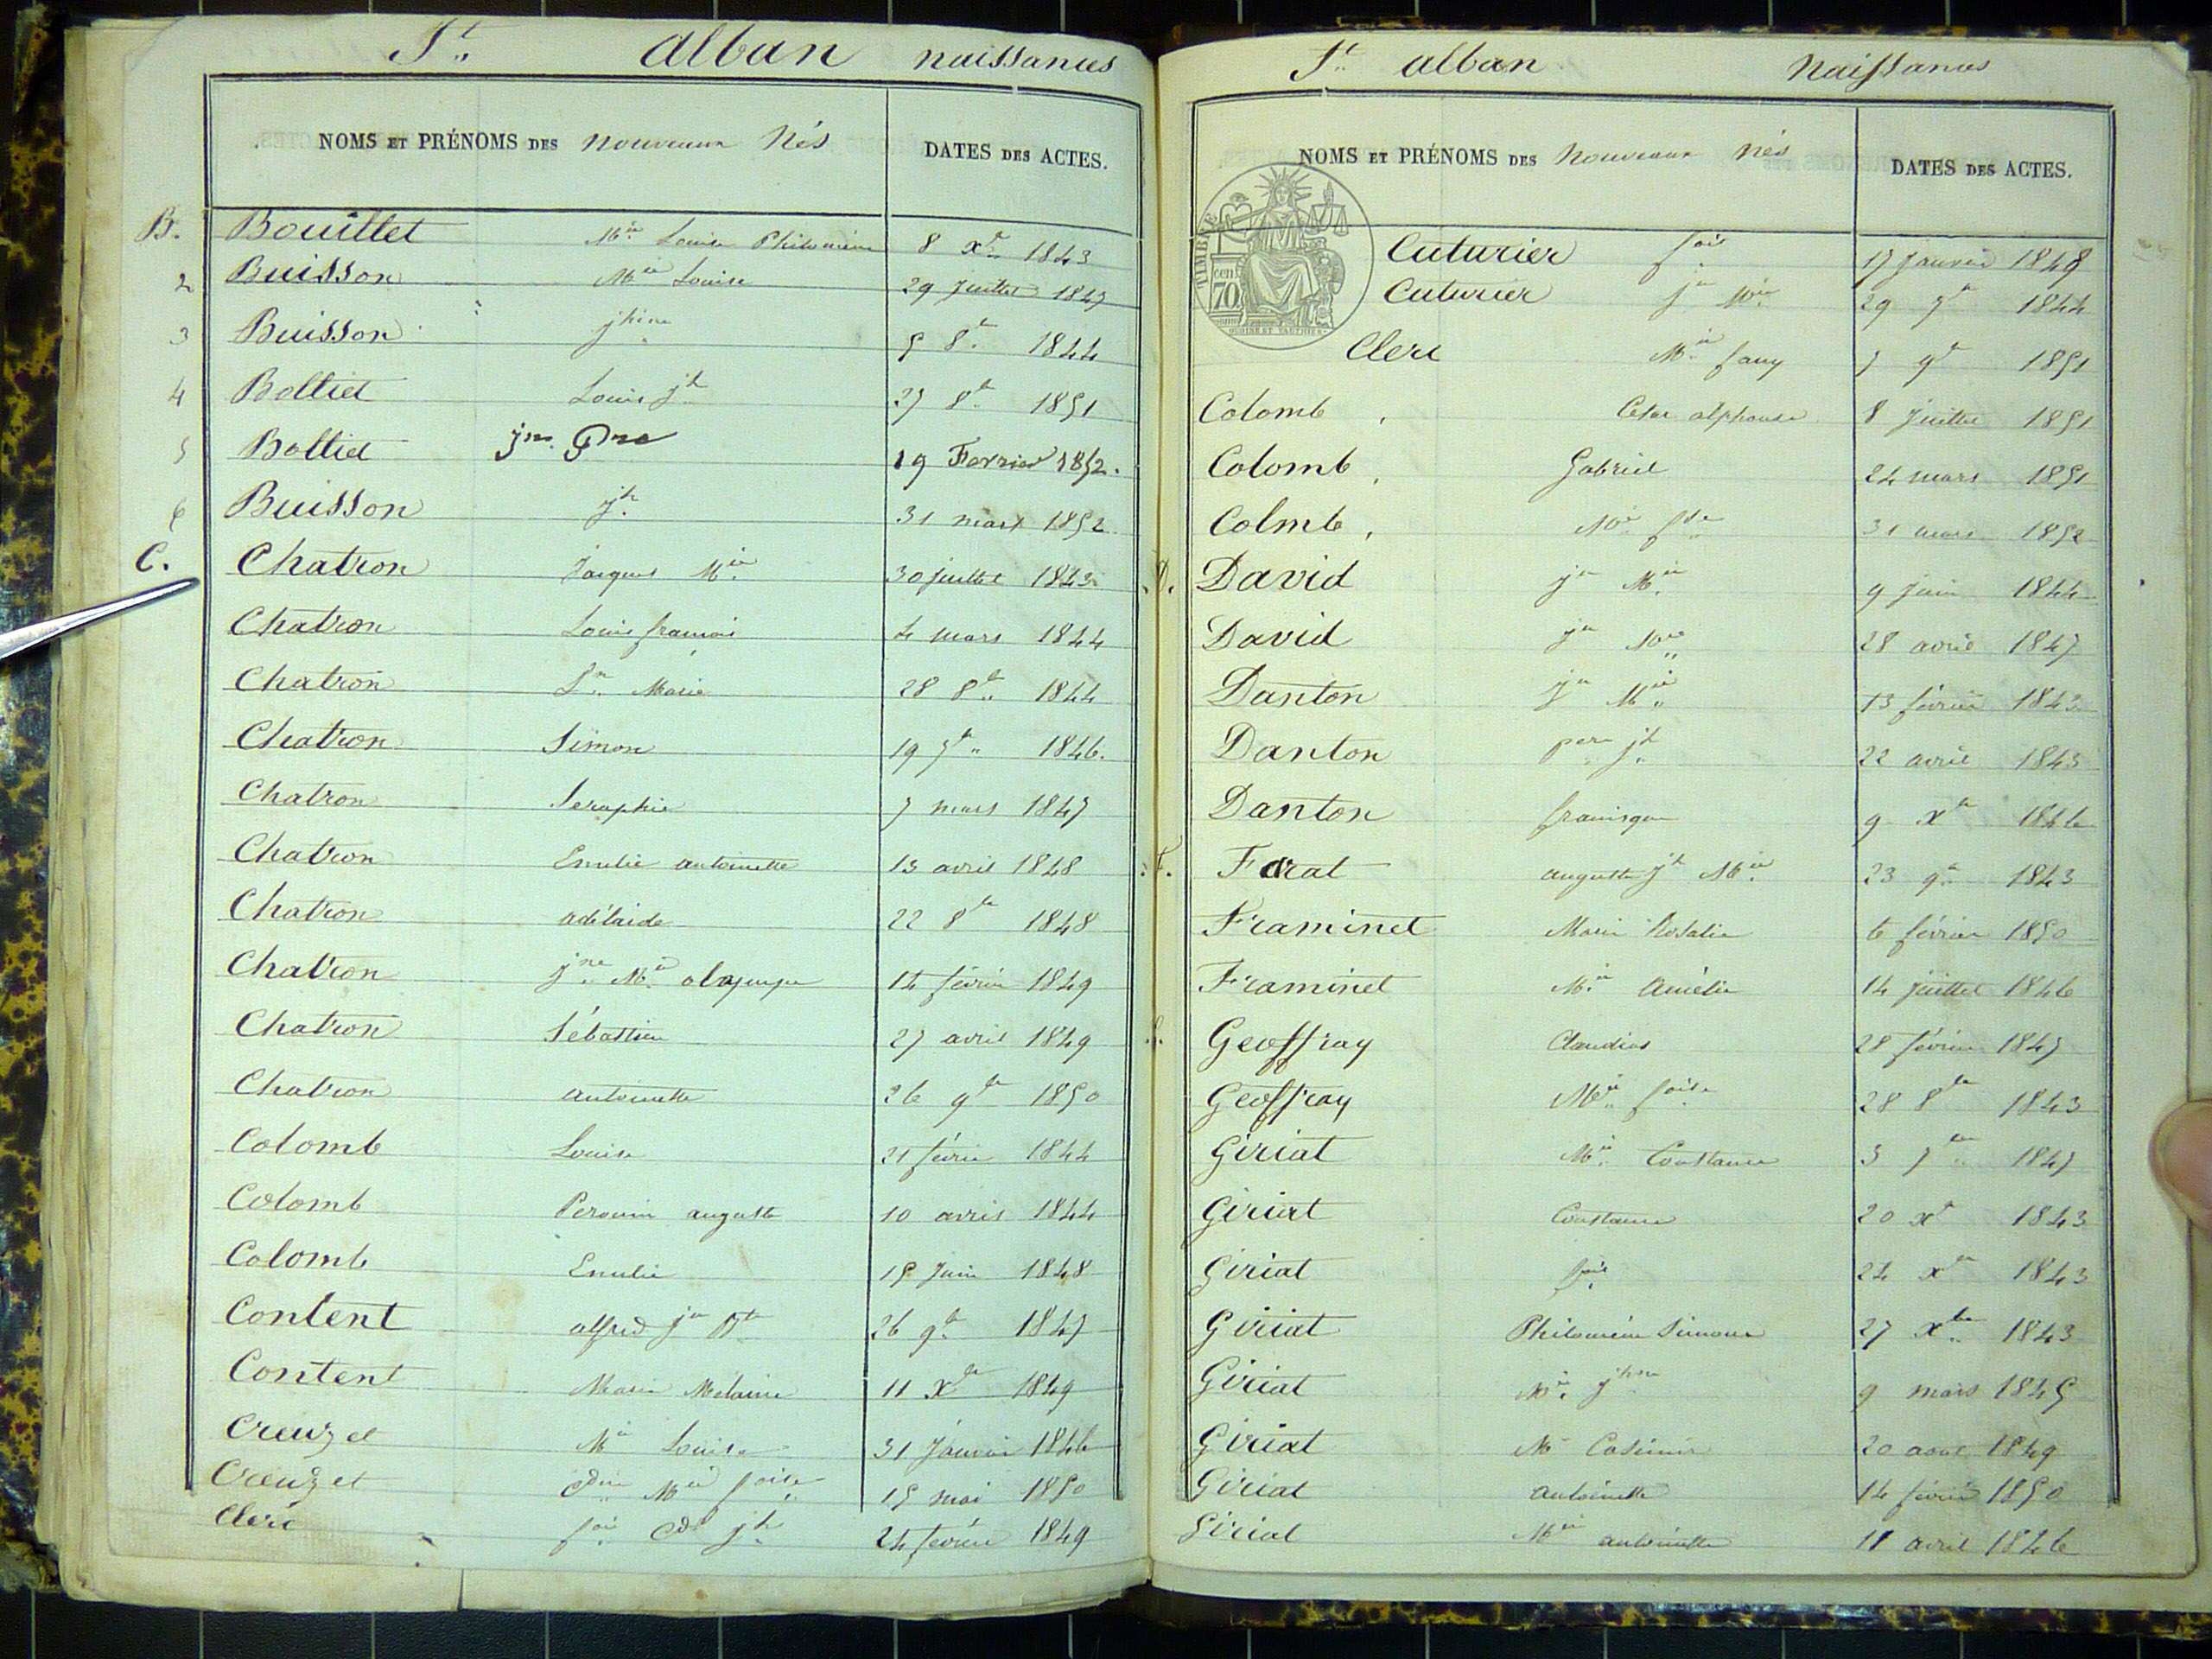 St. Alban naissances
NOMS ET PRÉNOMS DES nouveaux Nés DATES DES ACTES.
B. Bouillet Mie Louise Philomène 8 Xbre 1843
2 Buisson Mie Louise 29 juillet 1847
3 Buisson jhine 5 8bre 1844
4 Bolliet Louis jh 27 8bre 1851
5 Bolliet jn. Pre 19 Fevrier 1852.
6 Buisson jh 31 mars 1852
C. Chatron Jacques Mie 30 juillet 1843
Chatron Louis francois 4 mars 1844
Chatron Marie 28 8bre 1844
Chatron Simon 19 7bre 1846.
Chatron Seraphie 7 mars 1847
Chatron Emelie antoinette 13 avril 1848
Chatron adélaide 22 8bre 1848
Chatron jne Mie olympe 14 février 1849
Chatron Sébastien 27 avril 1849
Chatron antoinette 26 9bre 1850
Colomb Louise 21 février 1844
Colomb auguste 10 avril 1844
Colomb Emelie 15 juin 1848
Content alfred jn Bte 26 9bre 1847
Content Marie Melanie 11 Xbre 1849
Creuzet Mie Louise 31 Janvier 1846
Creuzet Mie foise 15 mai 1850
Clerc fois Cde jh 24 février 1849
St. alban Naissances
NOMS ET PRÉNOMS DES nouveaux nés DATES DES ACTES.
TIMBRE
70 cent
Cuturier fois 17 Janvier 1848
Cuturier jn Mie 29 7bre 1844
Clerc Mie fany 7 9bre 1851
Colomb Cesar alphonse 8 juillet 1851
Colomb, Gabriel 24 mars 1851
Colmb, 31 mars 1852
D. David jn Mie 9 juin 1844
David jn Mie 28 avril 1847
Danton jn Mie 13 février 1843
Danton pere jh 22 avril 1843
Danton franisque 9 Xbre 1846
F. Farat auguste jh Mie 23 9bre 1843
Framinet Marie Rosalie 6 février 1850
Framinet Mie Amélie 14 juillet 1846
G. Geoffray Claudius 28 février 1847
Geoffray Mie foise 28 8bre 1843
Giriat Mie Constance 3 7bre 1847
Giriat Constance 20 Xbre 1843
Giriat fois 24 Xbre 1843
Giriat Philomène Simone 27 Xbre 1843
Giriat Mie jhine 9 mars 1845
Giriat Mie Casimir 20 aout 1849
Giriat antoinette 14 février 1850
Giriat Mie antoinette 11 avril 1846